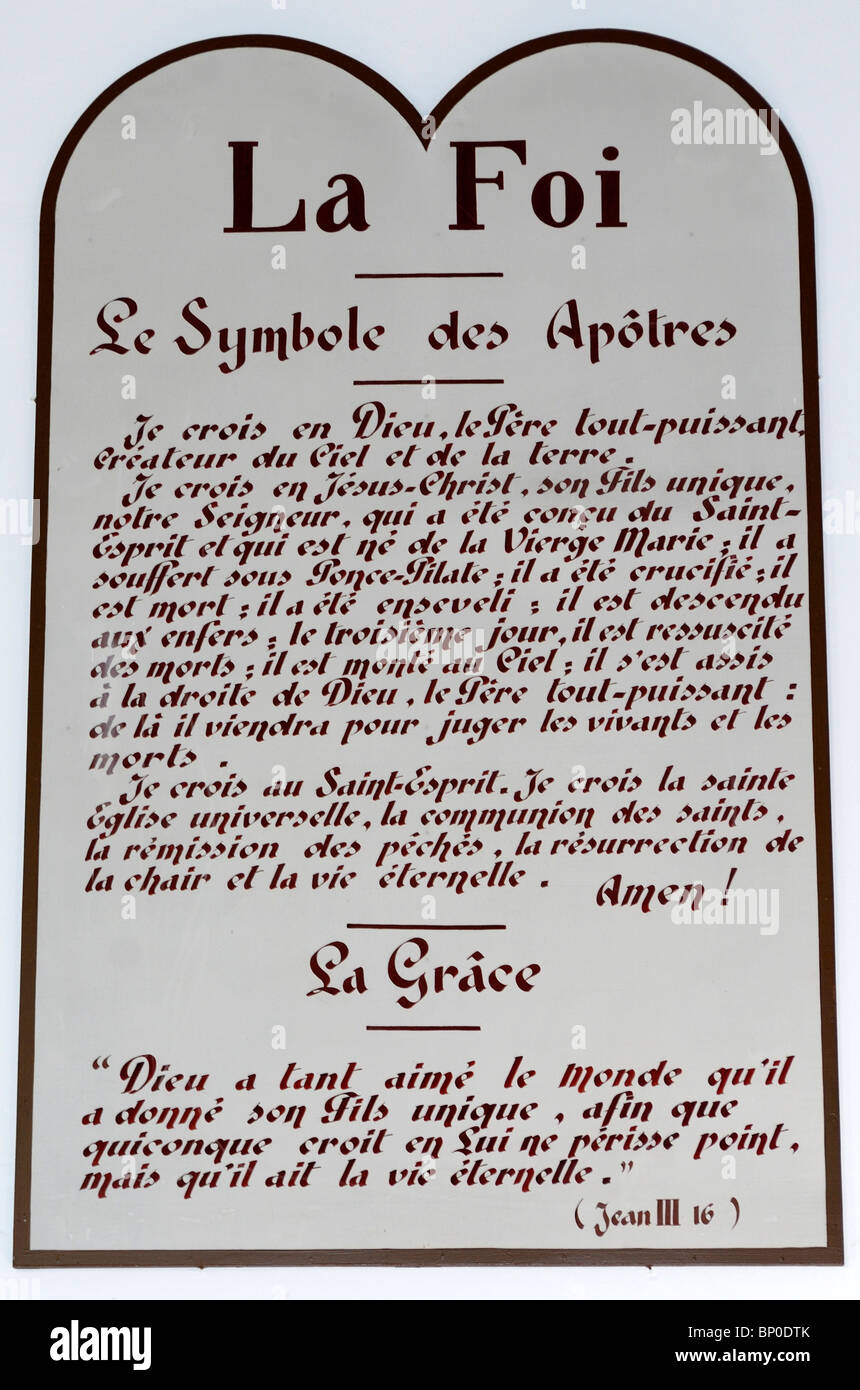 La Foi
Le Symbole des Apôtres
Je crois en Dieu, le Père tout-puissant,
Créateur du Ciel et de la terre.
Je crois en Jésus-Christ, son Fils unique,
notre Seigneur, qui a été conçu du Saint-
Esprit et qui est né de la Vierge Marie ; il a
souffert sous Ponce-Pilate ; il a été crucifié ; il
est mort ; il a été enseveli ; il est descendu
aux enfers ; le troisième jour, il est ressuscité
des morts ; il est monté au Ciel ; il s'est assis
à la droite de Dieu, le Père tout-puissant :
de là il viendra pour juger les vivants et les
morts .
Je crois au Saint-Esprit. Je crois la sainte
Eglise universelle, la communion des saints,
la rémission des péchés, la résurrection de
la chair et la vie éternelle .
Amen !
La Grâce
“Dieu a tant aimé le Monde qu'il
a donné son Fils unique , afin que
quiconque croit en Lui ne périsse point,
mais qu'il ait la vie éternelle .”
( Jean III 16 )
alamy
Image ID: BP0DTK
www.alamy.com